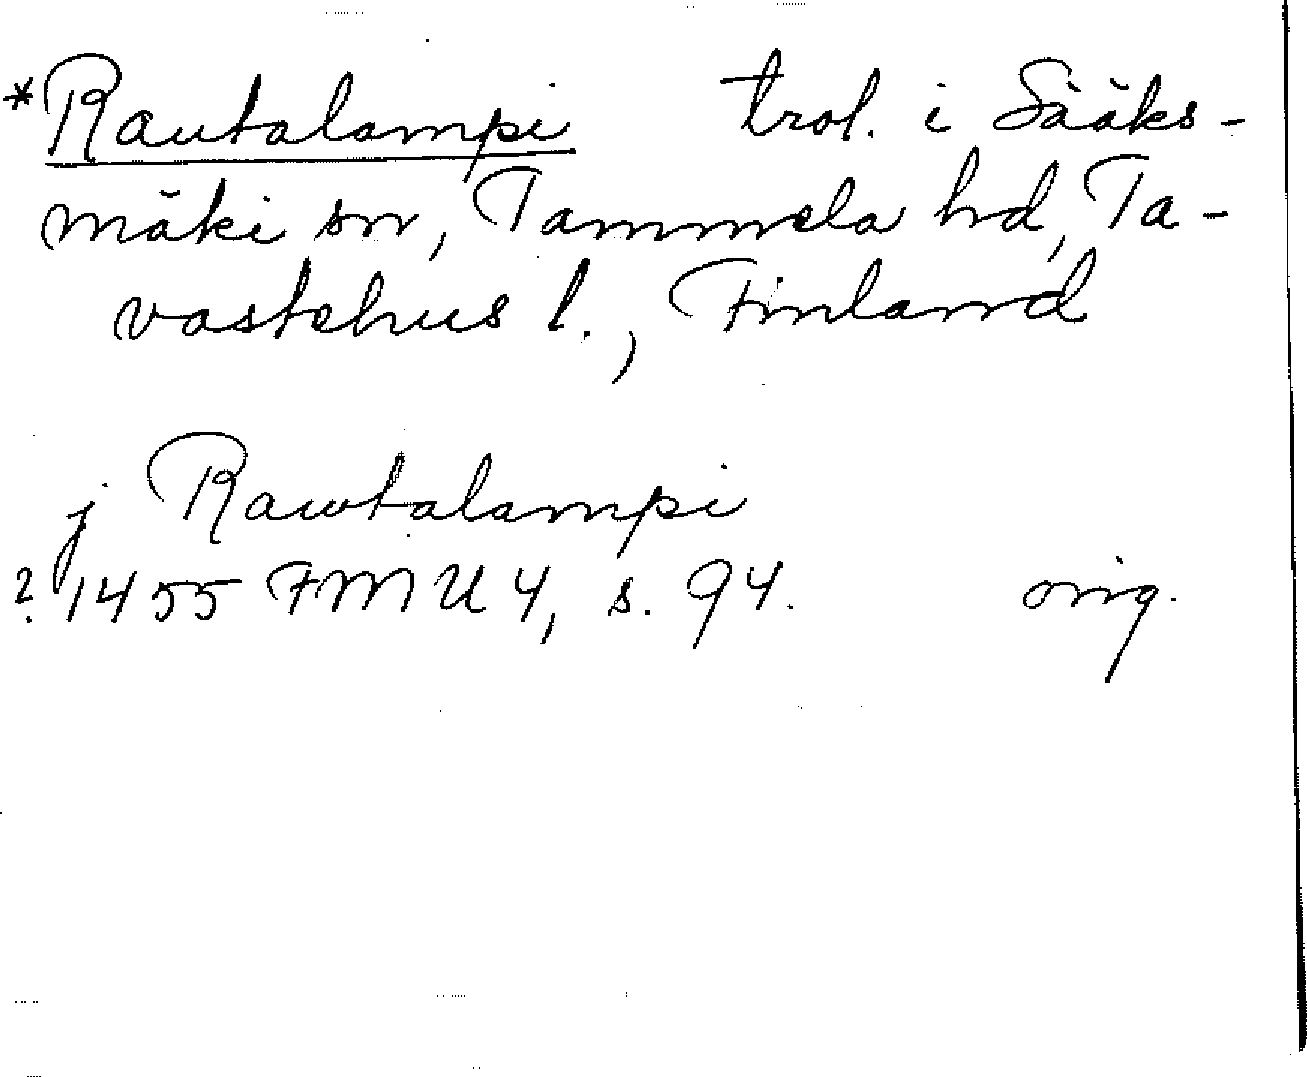 *Rautalampi trol. i Sääks-
mäki sn, Tammela hd, Ta-
vastehus l., Finland
j Rawtalampi
? 1455 FMU 4, s. 94. orig.